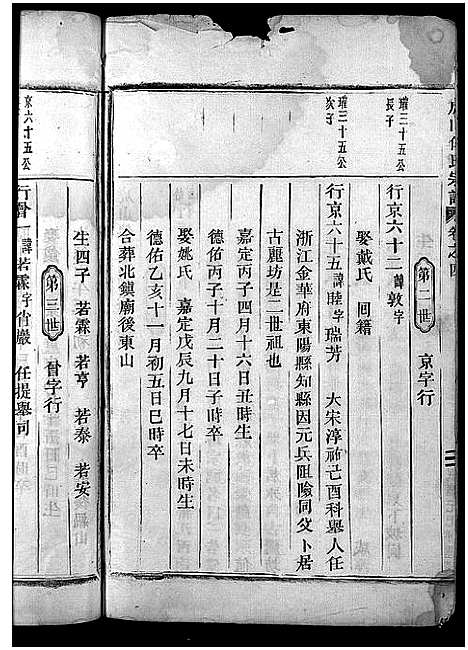 氏宗譜 卷之四
第二世 京字行
璀三十五公
長子
行京六十二諱敦字
娶戴氏 回籍
璀三十五公
次子
行京六十五諱睦字瑞芳 大宋淳祐己酉科舉人任
浙江金華府東陽縣知縣因元兵阻險同父卜居
古麗坊是二世祖也
嘉定丙子四月十六日丑時生
德佑丙子十月二十日子時卒
娶姚氏 嘉定戊辰九月十七日未時生
德佑乙亥十一月初五日巳時卒
合葬北鎮廟後東山
生四子 若霖 若亨 若泰 若安
第三世 字行
京六十五公
行 一諱若霖字 巖 任提舉司